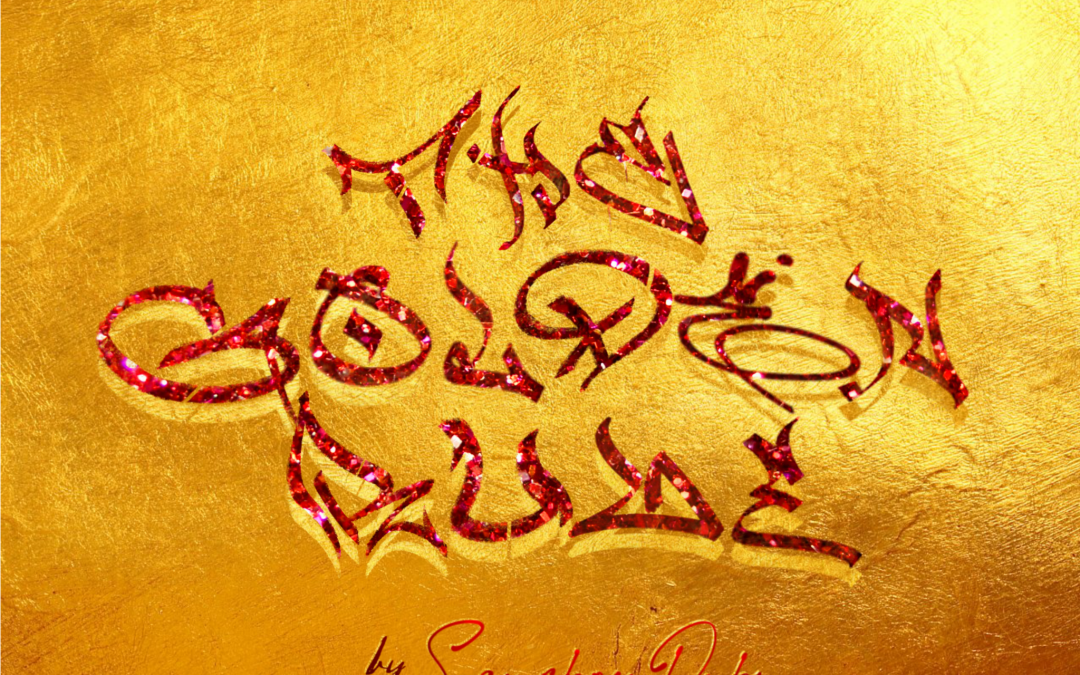 THE
GOLDEN
RULE
by